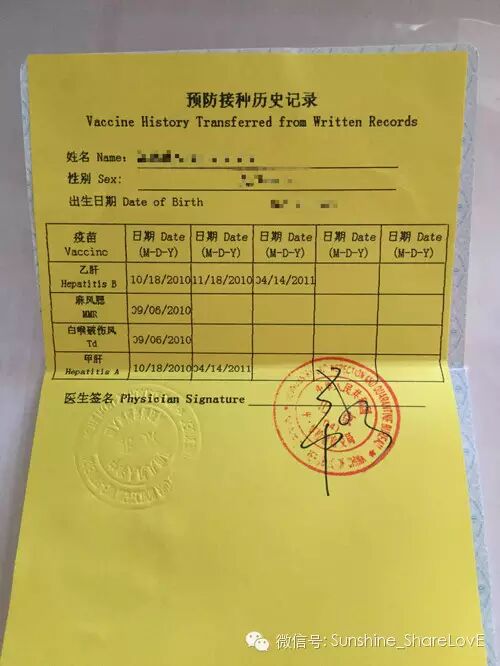 预防接种历史记录
Vaccine History Transferred from Written Records
姓名 Name:
性别 Sex:
出生日期 Date of Birth
疫苗 日期 Date 日期 Date 日期 Date 日期 Date 日期 Date
Vaccine (M-D-Y) (M-D-Y) (M-D-Y) (M-D-Y) (M-D-Y)
乙肝
Hepatitis B 10/18/2010 11/18/2010 04/14/2011
麻风腮
MMR 09/06/2010
白喉破伤风
Td 09/06/2010
甲肝
Hepatitis A 10/18/2010 04/14/2011
医生签名 Physician Signature
微信号: Sunshine_ShareLovE